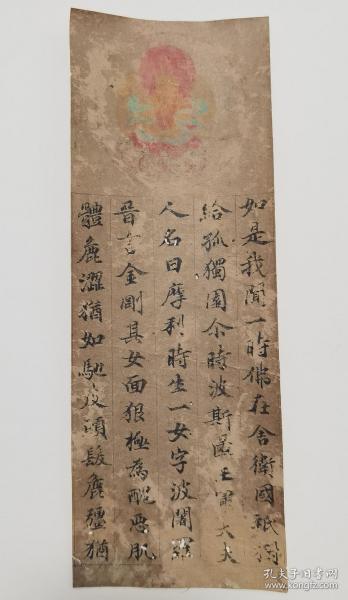 如是我聞一時佛在舍衛國祇洹
給孤獨園尒時波斯匿王軍大夫
人名曰摩利時生一女字波闍羅
晉言金剛其女面狠極為醜惡肌
體麁澀猶如駞皮頭髮麁彊猶
孔夫子旧书网